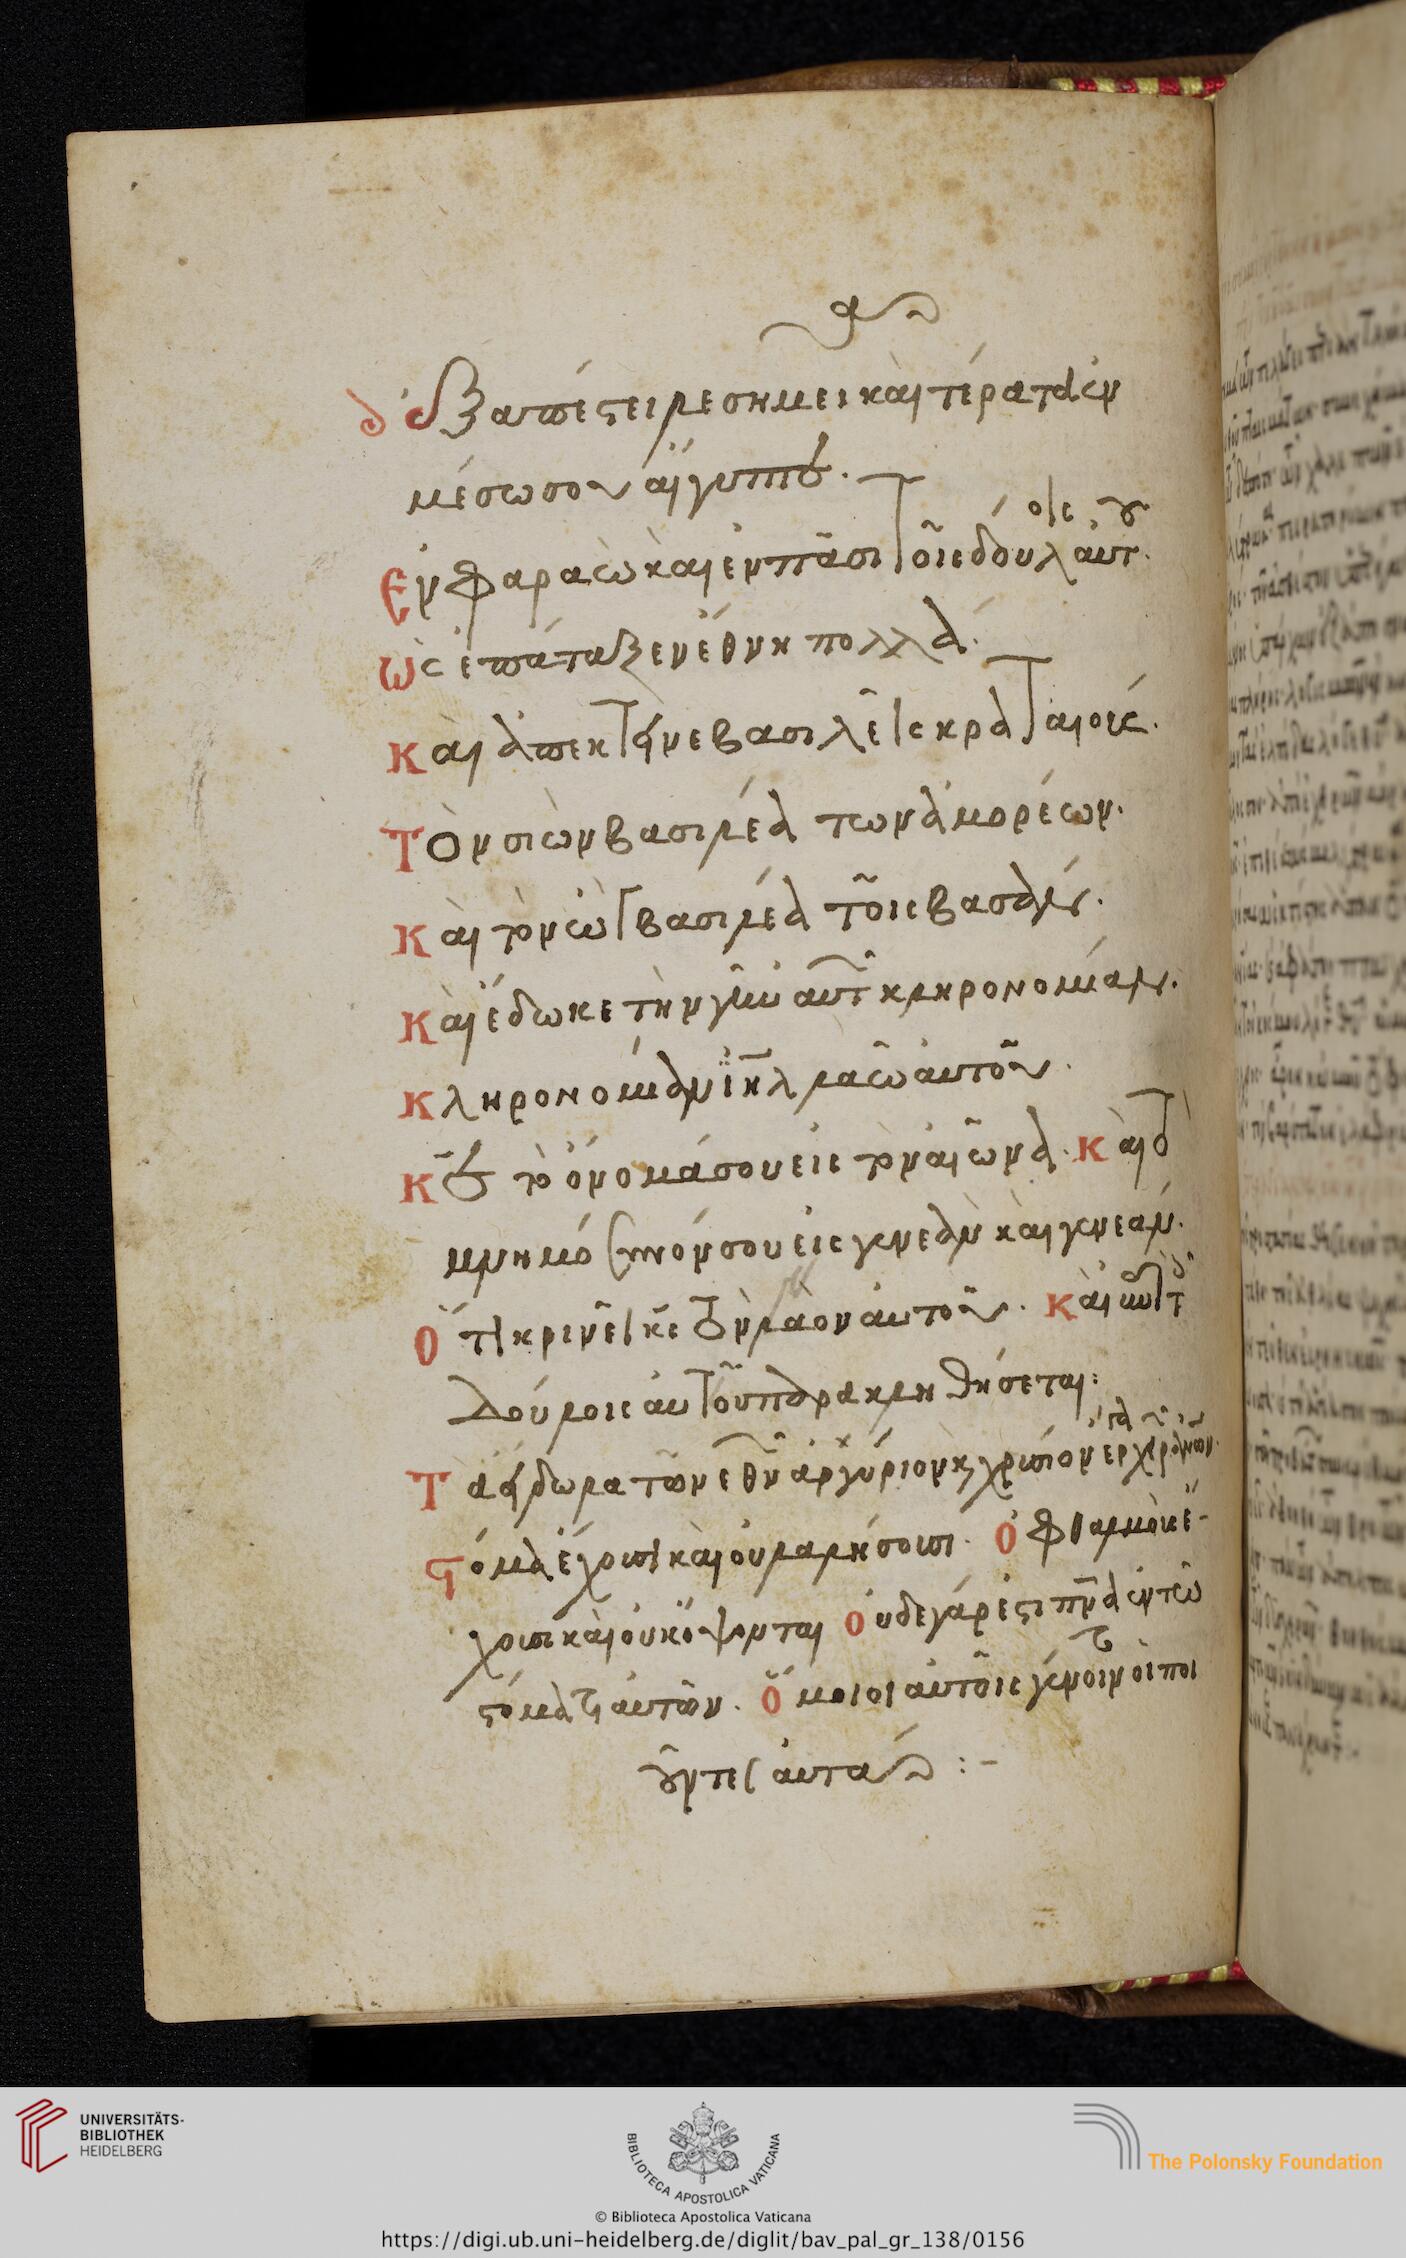 ἐξαπέστειλε σημεῖ καὶ τέρατα ἐν
μέσω σου αἴγυπτε.
Ἐν φαραὼ καὶ ἐν πᾶσι τοῖς δούλοις αὐτοῦ.
Ὡς ἐπάταξεν ἔθνη πολλά.
Καὶ ἀπέκτεινε βασιλεῖς κραταιούς.
Τὸν σιὼν βασιλέα των ἀμορέων.
Καὶ τὸν ὢγ βασιλέα τῆς βασάν.
Καὶ ἔδωκε τὴν γῆν αὐτῶν κληρονομίαν.
Κληρονομίαν ἰηλ λαῶ αὐτοῦ.
Κε τὸ ὄνομά σου εἰς τὸν αἰῶνα. Καὶ τὸ
μνημόσυνόν σου εἰς γενεὰν καὶ γενεάν.
Ὅτι κρινεῖ κς τὸν λαὸν αὐτοῦ. Καὶ ἐπὶ τοῖς
δούλοις αὐτοῦ παρακληθήσεται:
Τὰ εἴδωλα τῶν ἐθνῶν ἀργύριον καὶ χρυσίον ἔργα χειρῶν ἀνων.
Στόμα ἔχουσι καὶ οὐ λαλήσουσι. Ὀφθαλμοὺς ἔ-
χουσι καὶ οὐκ ὄψονται Οὐδὲ γάρ ἐστι πνα ἐν τῶ
στόματι αὐτῶν. Ὅμοιοι αὐτοῖς γένοιντο οἱ ποι
οῦντες αὐτά :-
UNIVERSITÄTS-
BIBLIOTHEK
HEIDELBERG
BIBLIOTECA APOSTOLICA VATICANA
The Polonsky Foundation
© Biblioteca Apostolica Vaticana
https://digi.ub.uni-heidelberg.de/diglit/bav_pal_gr_138/0156